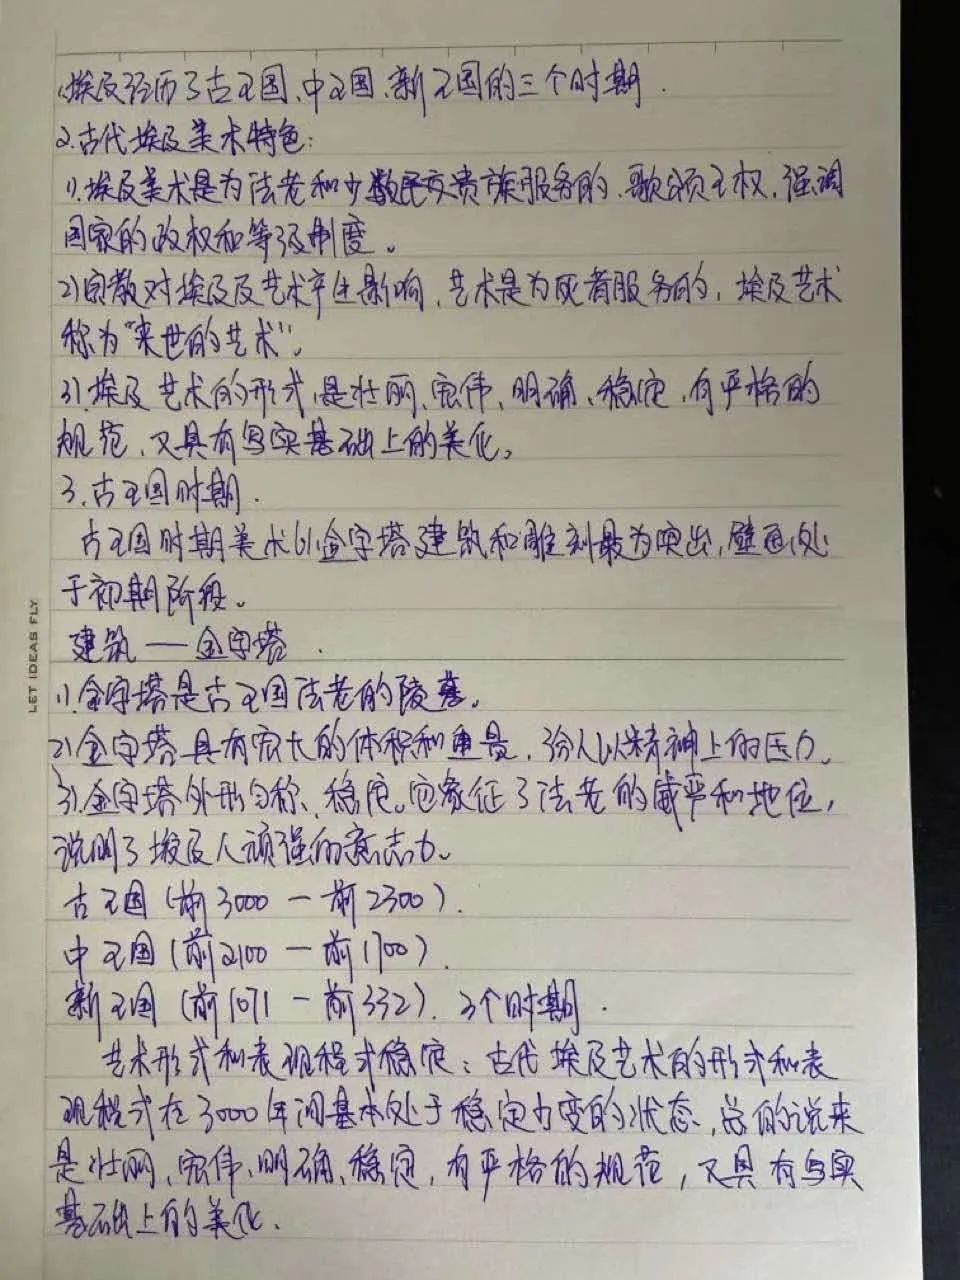 1.埃及经历了古王国、中王国、新王国的三个时期.
2.古代埃及美术特色:
1).埃及美术是为法老和少数贵族服务的,歌颂王权,强调
国家的政权和等级制度。
2)宗教对埃及及艺术产生影响,艺术是为死者服务的,埃及艺术
称为“来世的艺术”。
3).埃及艺术的形式,是壮丽、宏伟、明确、稳定,有严格的
规范,又具有写实基础上的美化。
3.古王国时期.
古王国时期美术以金字塔建筑和雕刻最为突出,壁画处
于初期阶段。
建筑——金字塔.
1).金字塔是古王国法老的陵墓。
2)金字塔具有宏大的体积和重量,给人以精神上的压力。
3).金字塔外形匀称、稳定。它象征了法老的威严和地位,
说明了埃及人顽强的意志力。
古王国(前3000—前2300).
中王国(前2100—前1700).
新王国(前1071—前332).3个时期.
艺术形式和表现程式稳定:古代埃及艺术的形式和表
现程式在3000年间基本处于稳定少变的状态,总的说来
是壮丽、宏伟、明确、稳定,有严格的规范,又具有写实
基础上的美化.
LET IDEAS FLY